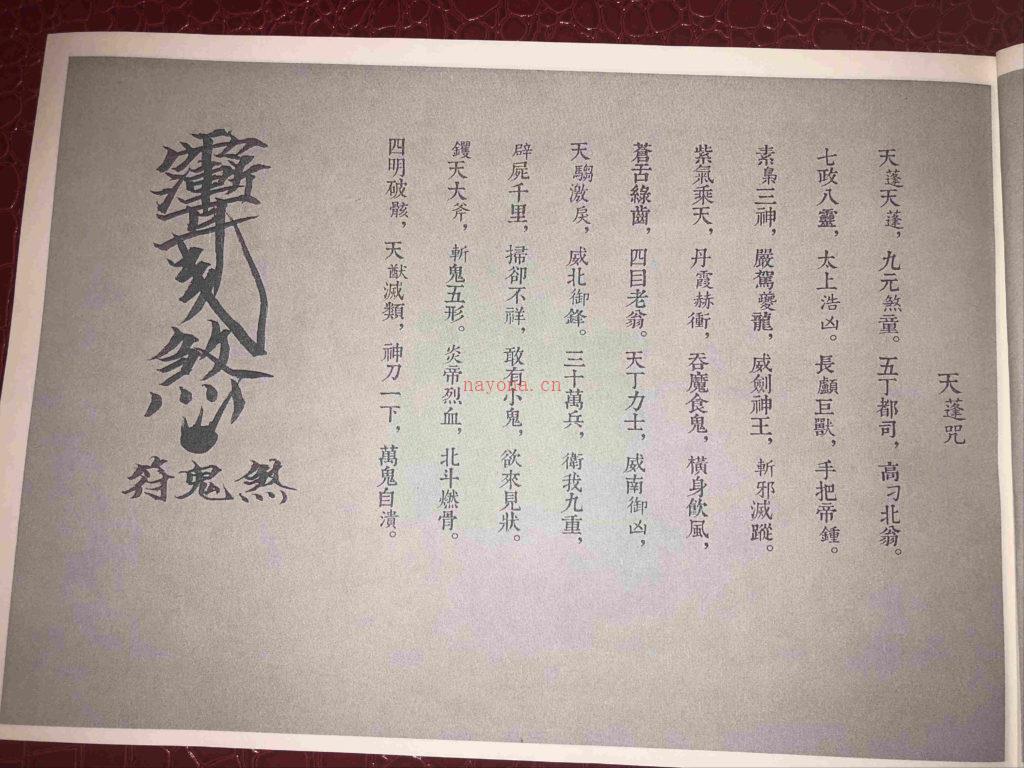 天蓬咒
天蓬天蓬，九元煞童。五丁都司，高刁北翁。
七政八靈，太上浩凶。長顱巨獸，手把帝鍾。
素梟三神，嚴駕夔龍，威劍神王，斬邪滅蹤。
紫氣乘天，丹霞赫衝，吞魔食鬼，橫身飲風，
蒼舌綠齒，四目老翁。天丁力士，威南御凶，
天騶激戾，威北御鋒。三十萬兵，衛我九重，
辟屍千里，掃卻不祥，敢有小鬼，欲來見狀。
钁天大斧，斬鬼五形。炎帝烈血，北斗燃骨。
四明破骸，天猷滅類，神刀一下，萬鬼自潰。
煞鬼符
nayona.cn